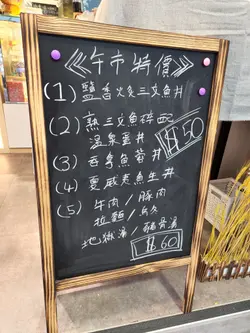 《午市特價》
(1) 鹽香火炙三文魚丼
(2) 熟三文魚碎配
溫泉蛋丼
$50
(3) 吞拿魚蓉丼
(4) 夏威夷魚生丼
(5) 牛肉/豚肉
拉麵/烏冬
地獄湯/豬骨湯
$60